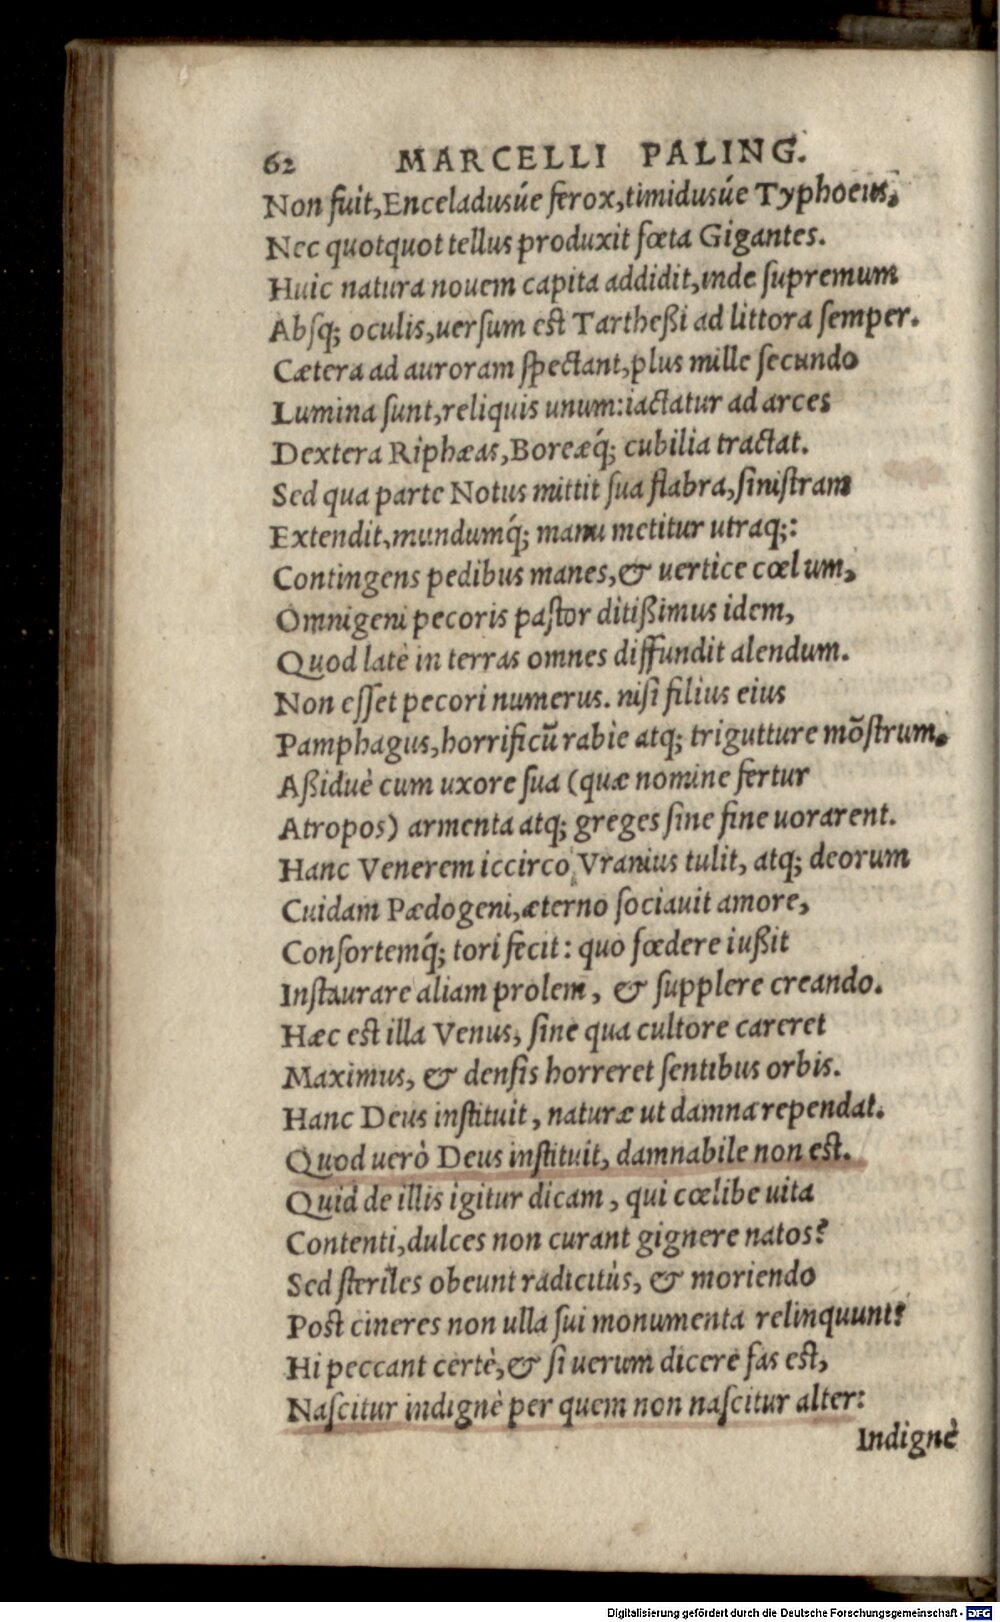 62 MARCELLI PALING.
Non fuit, Enceladusúe ferox, timidusúe Typhoeus,
Nec quotquot tellus produxit fœta Gigantes.
Huic natura nouem capita addidit, inde supremum
Absq; oculis, uersum est Tartheßi ad littora semper.
Cætera ad auroram spectant, plus mille secundo
Lumina sunt, reliquis unum: iactatur ad arces
Dextera Riphæas, Boreæq́; cubilia tractat.
Sed qua parte Notus mittit sua flabra, sinistram
Extendit, mundumq́; manu metitur utraq;:
Contingens pedibus manes, & uertice cœlum,
Omnigeni pecoris pastor ditißimus idem,
Quod latè in terras omnes diffundit alendum.
Non esset pecori numerus. nisi filius eius
Pamphagus, horrificũ rabie atq; trigutture mõstrum.
Aßiduè cum uxore sua (quæ nomine fertur
Atropos) armenta atq; greges sine fine uorarent.
Hanc Venerem iccirco Vranius tulit, atq; deorum
Cuidam Pædogeni, æterno sociauit amore,
Consortemq́; tori fecit: quo fœdere iußit
Instaurare aliam prolem, & supplere creando.
Hæc est illa Venus, sine qua cultore careret
Maximus, & densis horreret sentibus orbis.
Hanc Deus instituit, naturæ ut damna rependat.
Quod uerò Deus instituit, damnabile non est.
Quid de illis igitur dicam, qui cœlibe uita
Contenti, dulces non curant gignere natos?
Sed steriles obeunt radicitùs, & moriendo
Post cineres non ulla sui monumenta relinquunt?
Hi peccant certè, & si uerum dicere fas est,
Nascitur indignè per quem non nascitur alter:
Indignè
Digitalisierung gefördert durch die Deutsche Forschungsgemeinschaft - DFG